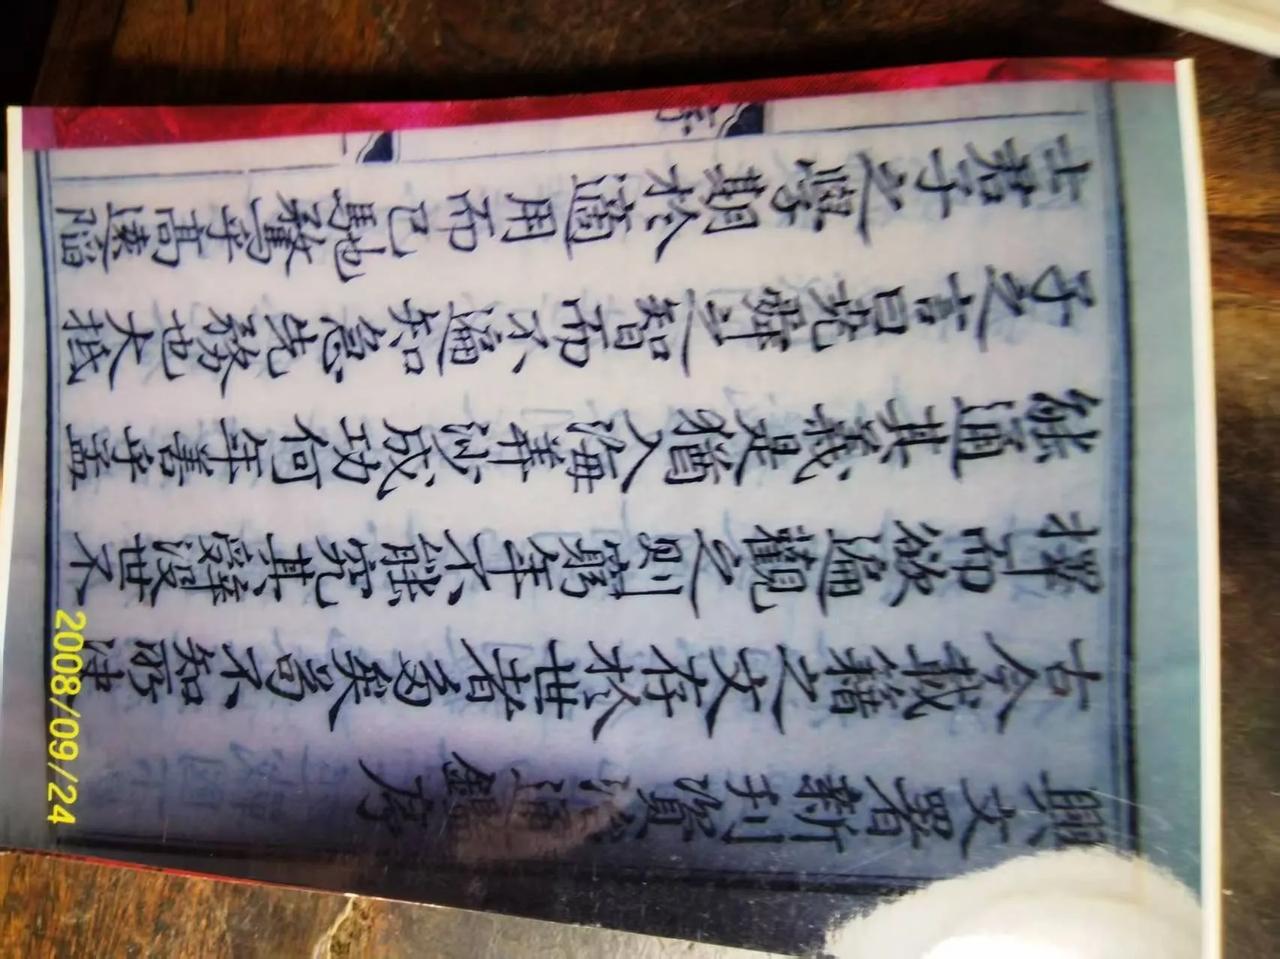 興文署新刊資治通鑑序
古今載籍之文存於世者多矣苟不知所決
擇而欲遍觀之則窮年不能究其辭沒世不
能通其義是猶入海筭沙成功何年善乎孟
子之言曰堯舜之智而不遍知急先務也大抵
士君子之學期於適用而已馳騖乎高遠陷
2008/09/24